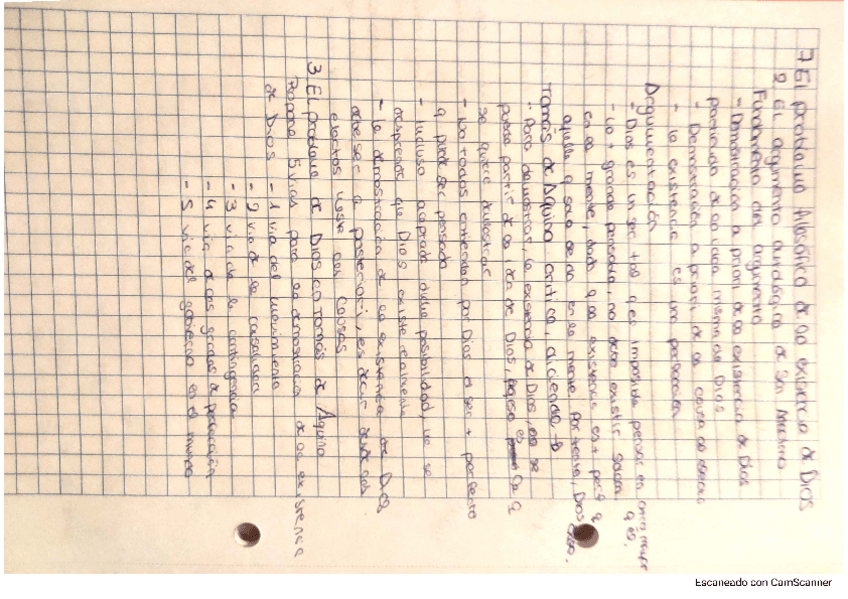 7 El problema filosófico de la existencia de Dios
2. El argumento ontológico de San Anselmo
Fundamento del argumento
- Demostración a priori de la existencia de Dios
partiendo de la idea misma de Dios
- Demostración a priori de la
- la existencia es una perfección
Argumentación
- Dios es un ser tal q es imposible pensar en otro mayor
- Lo + grande no debe existir solam
en la mente, dado q la existencia es + perf q
aquello q solo se da en la mente. Por tanto, Dios
Tomás de Aquino critica, diciendo
- Para demostrar la existencia de Dios, no se
puede partir de la idea de Dios, es lo q
se quiere demostrar
- No todos entienden por Dios el ser + perfecto
q puede ser pensado
- Incluso aceptada dicha posibilidad, no se
desprende que Dios existe realmente
- la demostración de la existencia de Dios
debe ser a posteriori, es decir desde los
efectos hasta las causas
3. El problema de Dios en Tomás de Aquino
Propone 5 vías para la demostración de la existencia
de Dios - 1 vía del movimiento
- 2 vía de la causalidad
- 3 vía de la contingencia
- 4 vía de los grados de perfección
- 5 vía del gobierno en el mundo
Escaneado con CamScanner